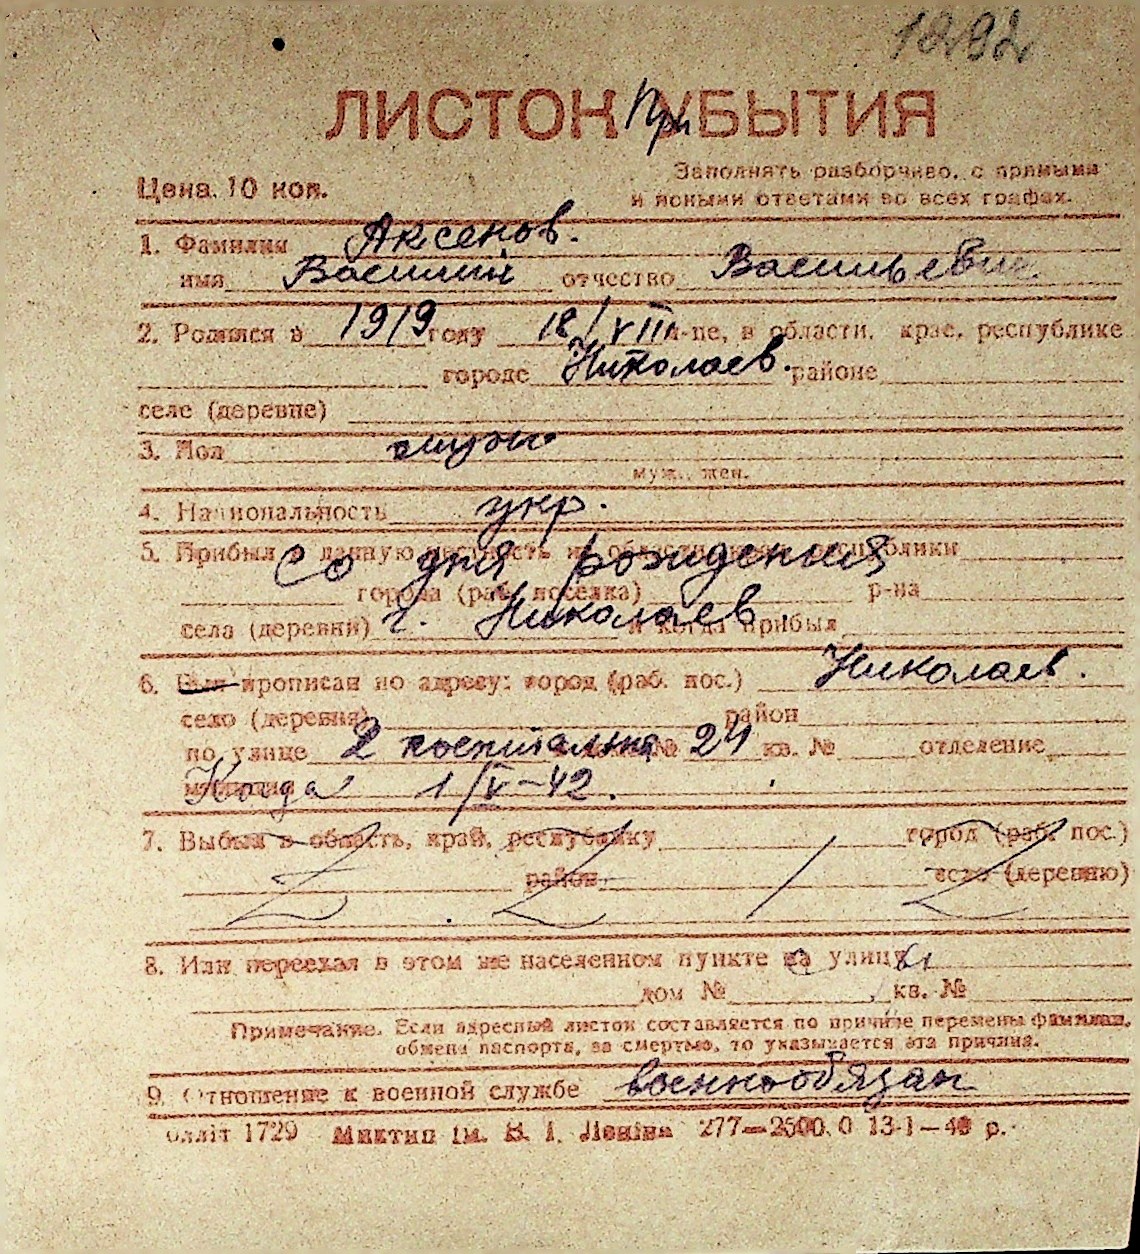 1292
ЛИСТОК При УБЫТИЯ
Цена 10 коп.
Заполнять разборчиво, с прямыми
и ясными ответами во всех графах.
1. Фамилия Аксенов.
имя Василий отчество Васильевич
2. Родился в 1919 году 18/VIII м-це, в области, крае, республике
городе Николаев. районе
селе (деревне)
3. Пол муж.
муж., жен.
4. Национальность укр.
5. Прибыл в данную местность из области, края, республики
Со дня рождения
города (раб. поселка) р-на
села (деревни) г. Николаев и когда прибыл
6. Был прописан по адресу: город (раб. пос.) Николаев.
село (деревня) район
по улице 2 дом № 24 кв. № отделение
милиции Когда 1/V-42.
7. Выбыл в область, край, республику город (раб. пос.)
район село (деревню)
8. Или переехал в этом же населенном пункте на улицу
дом № кв. №
Примечание. Если адресный листок составляется по причине перемены фамилии,
обмена паспорта, за смертью, то указывается эта причина.
9. Отношение к военной службе военнообязан
олліт 1729 Миктип ім. В. І. Леніна 277—2500.0 13-І—40 р.